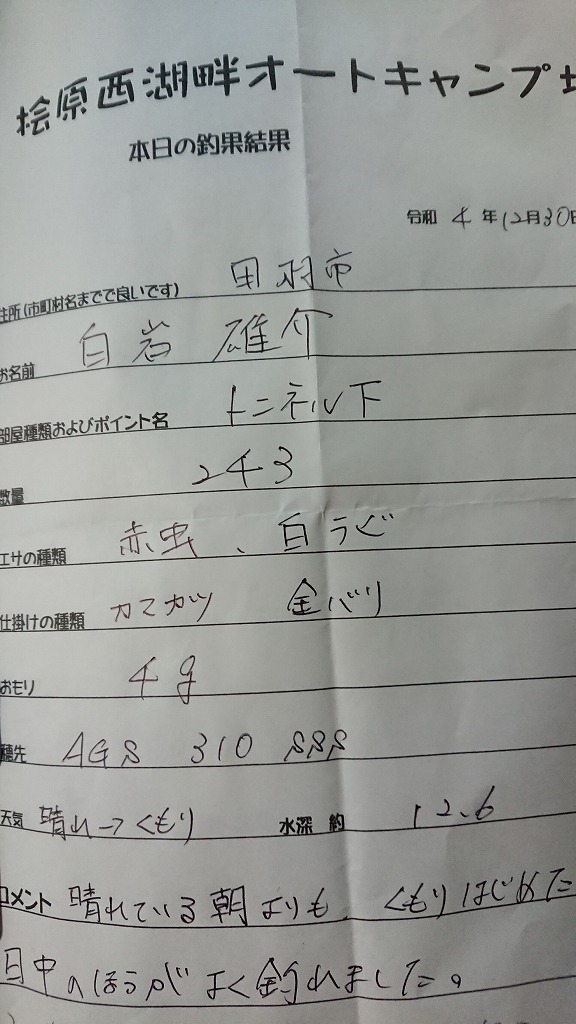 桧原西湖畔オートキャンプ
本日の釣果結果
令和 4 年 12月30日
住所(市町村名までで良いです) 田羽市
お名前 白岩 雄介
部屋種類およびポイント名 トンネル下
数量 243
エサの種類 赤虫、白ラビ
仕掛けの種類 カマガツ 金バリ
おもり 4g
穂先 AGS 310 SSS
天気 晴れ→くもり 水深 約 12.6
コメント 晴れている朝よりも、くもりはじめた
日中のほうがよく釣れました。